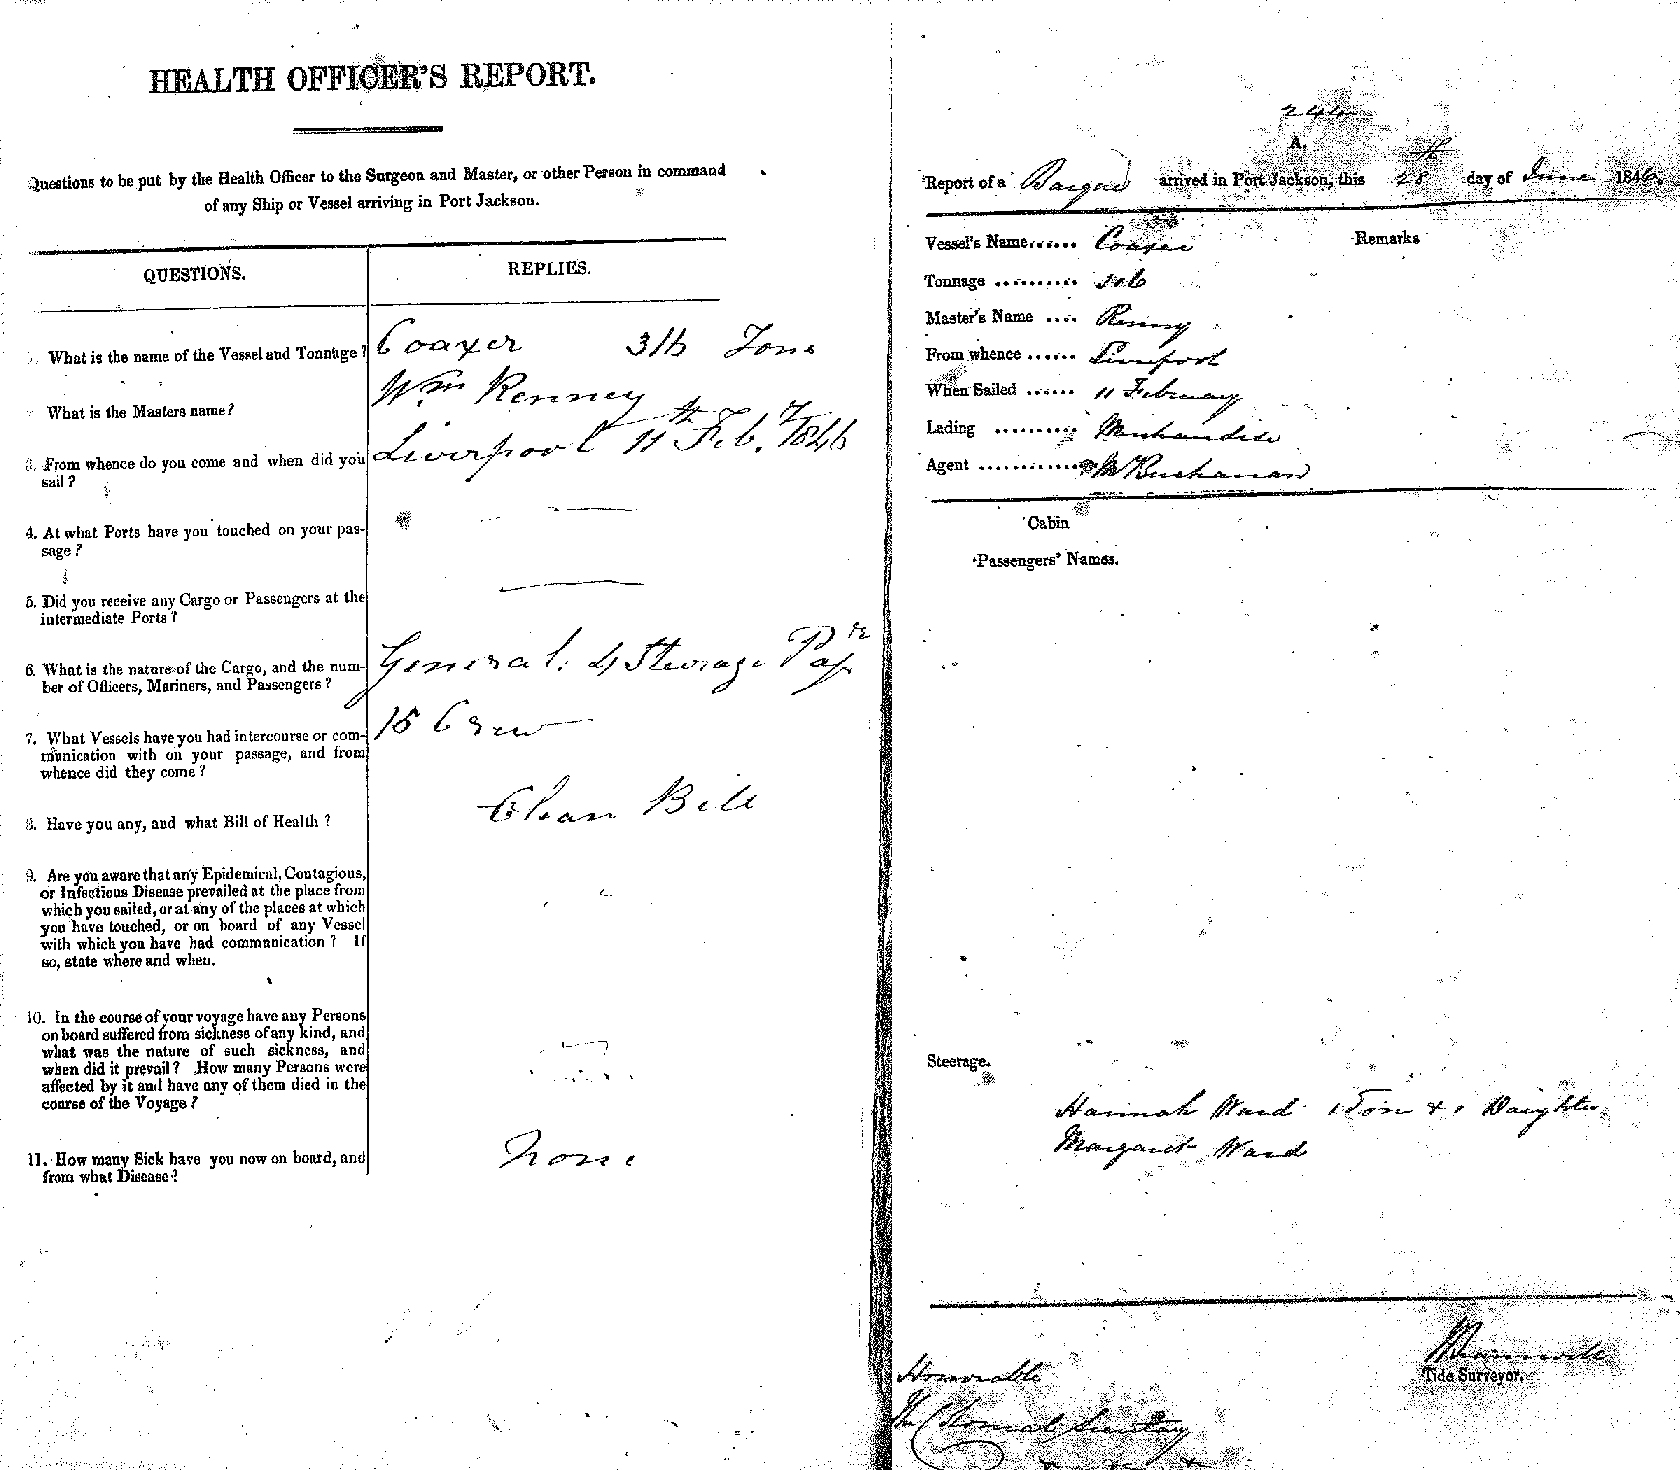 HEALTH OFFICER'S REPORT.
Questions to be put by the Health Officer to the Surgeon and Master, or other Person in command
of any Ship or Vessel arriving in Port Jackson.
QUESTIONS. REPLIES.
What is the name of the Vessel and Tonnage? Coaxer 316 Tons
What is the Masters name? Wm Renney
3. From whence do you come and when did you Liverpool 11th Feb.y 1846
sail?
4. At what Ports have you touched on your pas-
sage?
5. Did you receive any Cargo or Passengers at the
intermediate Ports?
6. What is the nature of the Cargo, and the num- General. 4 Steerage
ber of Officers, Mariners, and Passengers?
15 Crew
7. What Vessels have you had intercourse or com-
munication with on your passage, and from
whence did they come?
8. Have you any, and what Bill of Health? Clean Bill
9. Are you aware that any Epidemical, Contagious,
or Infectious Disease prevailed at the place from
which you sailed, or at any of the places at which
you have touched, or on board of any Vessel
with which you have had communication? If
so, state where and when.
10. In the course of your voyage have any Persons
on board suffered from sickness of any kind, and
what was the nature of such sickness, and
when did it prevail? How many Persons were
affected by it and have any of them died in the
course of the Voyage?
11. How many Sick have you now on board, and None
from what Disease?
A.
Report of a Barque arrived in Port Jackson, this 28th day of June 1846.
Vessel's Name...... Coaxer Remarks
Tonnage ..........
Master's Name .... Renny
From whence ...... Liverpool
When Sailed ...... 11 February
Lading .......... Merchandise
Agent .............. Buchanan
Cabin
Passengers' Names.
Steerage.
Hannah Ward 1 Son & 1 Daughter
Margaret Ward
Tide Surveyor.
Honorable
The Colonial Secretary